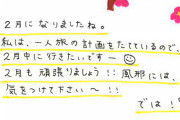 2月になりましたね。
私は、一人旅の計画をたてているので、
2月中に行きたいです〜
2月も頑張りましょう!! 風邪には、
気をつけて下さい〜 !!
では!!